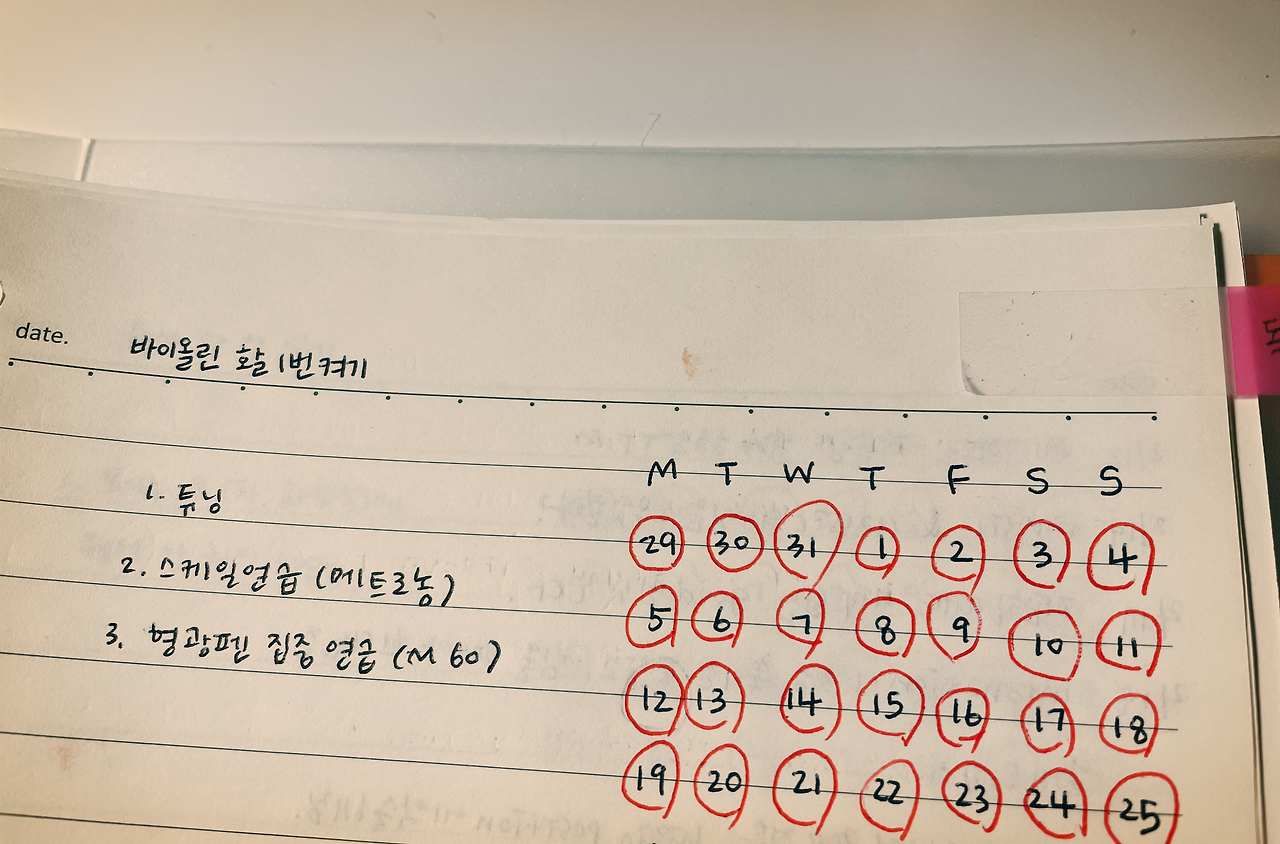 date. 바이올린 활 1번 켜기
M T W T F S S
1. 튜닝
29 30 31 1 2 3 4
2. 스케일연습 (메트로놈)
5 6 7 8 9 10 11
3. 형광펜 집중 연습 (M 60)
12 13 14 15 16 17 18
19 20 21 22 23 24 25